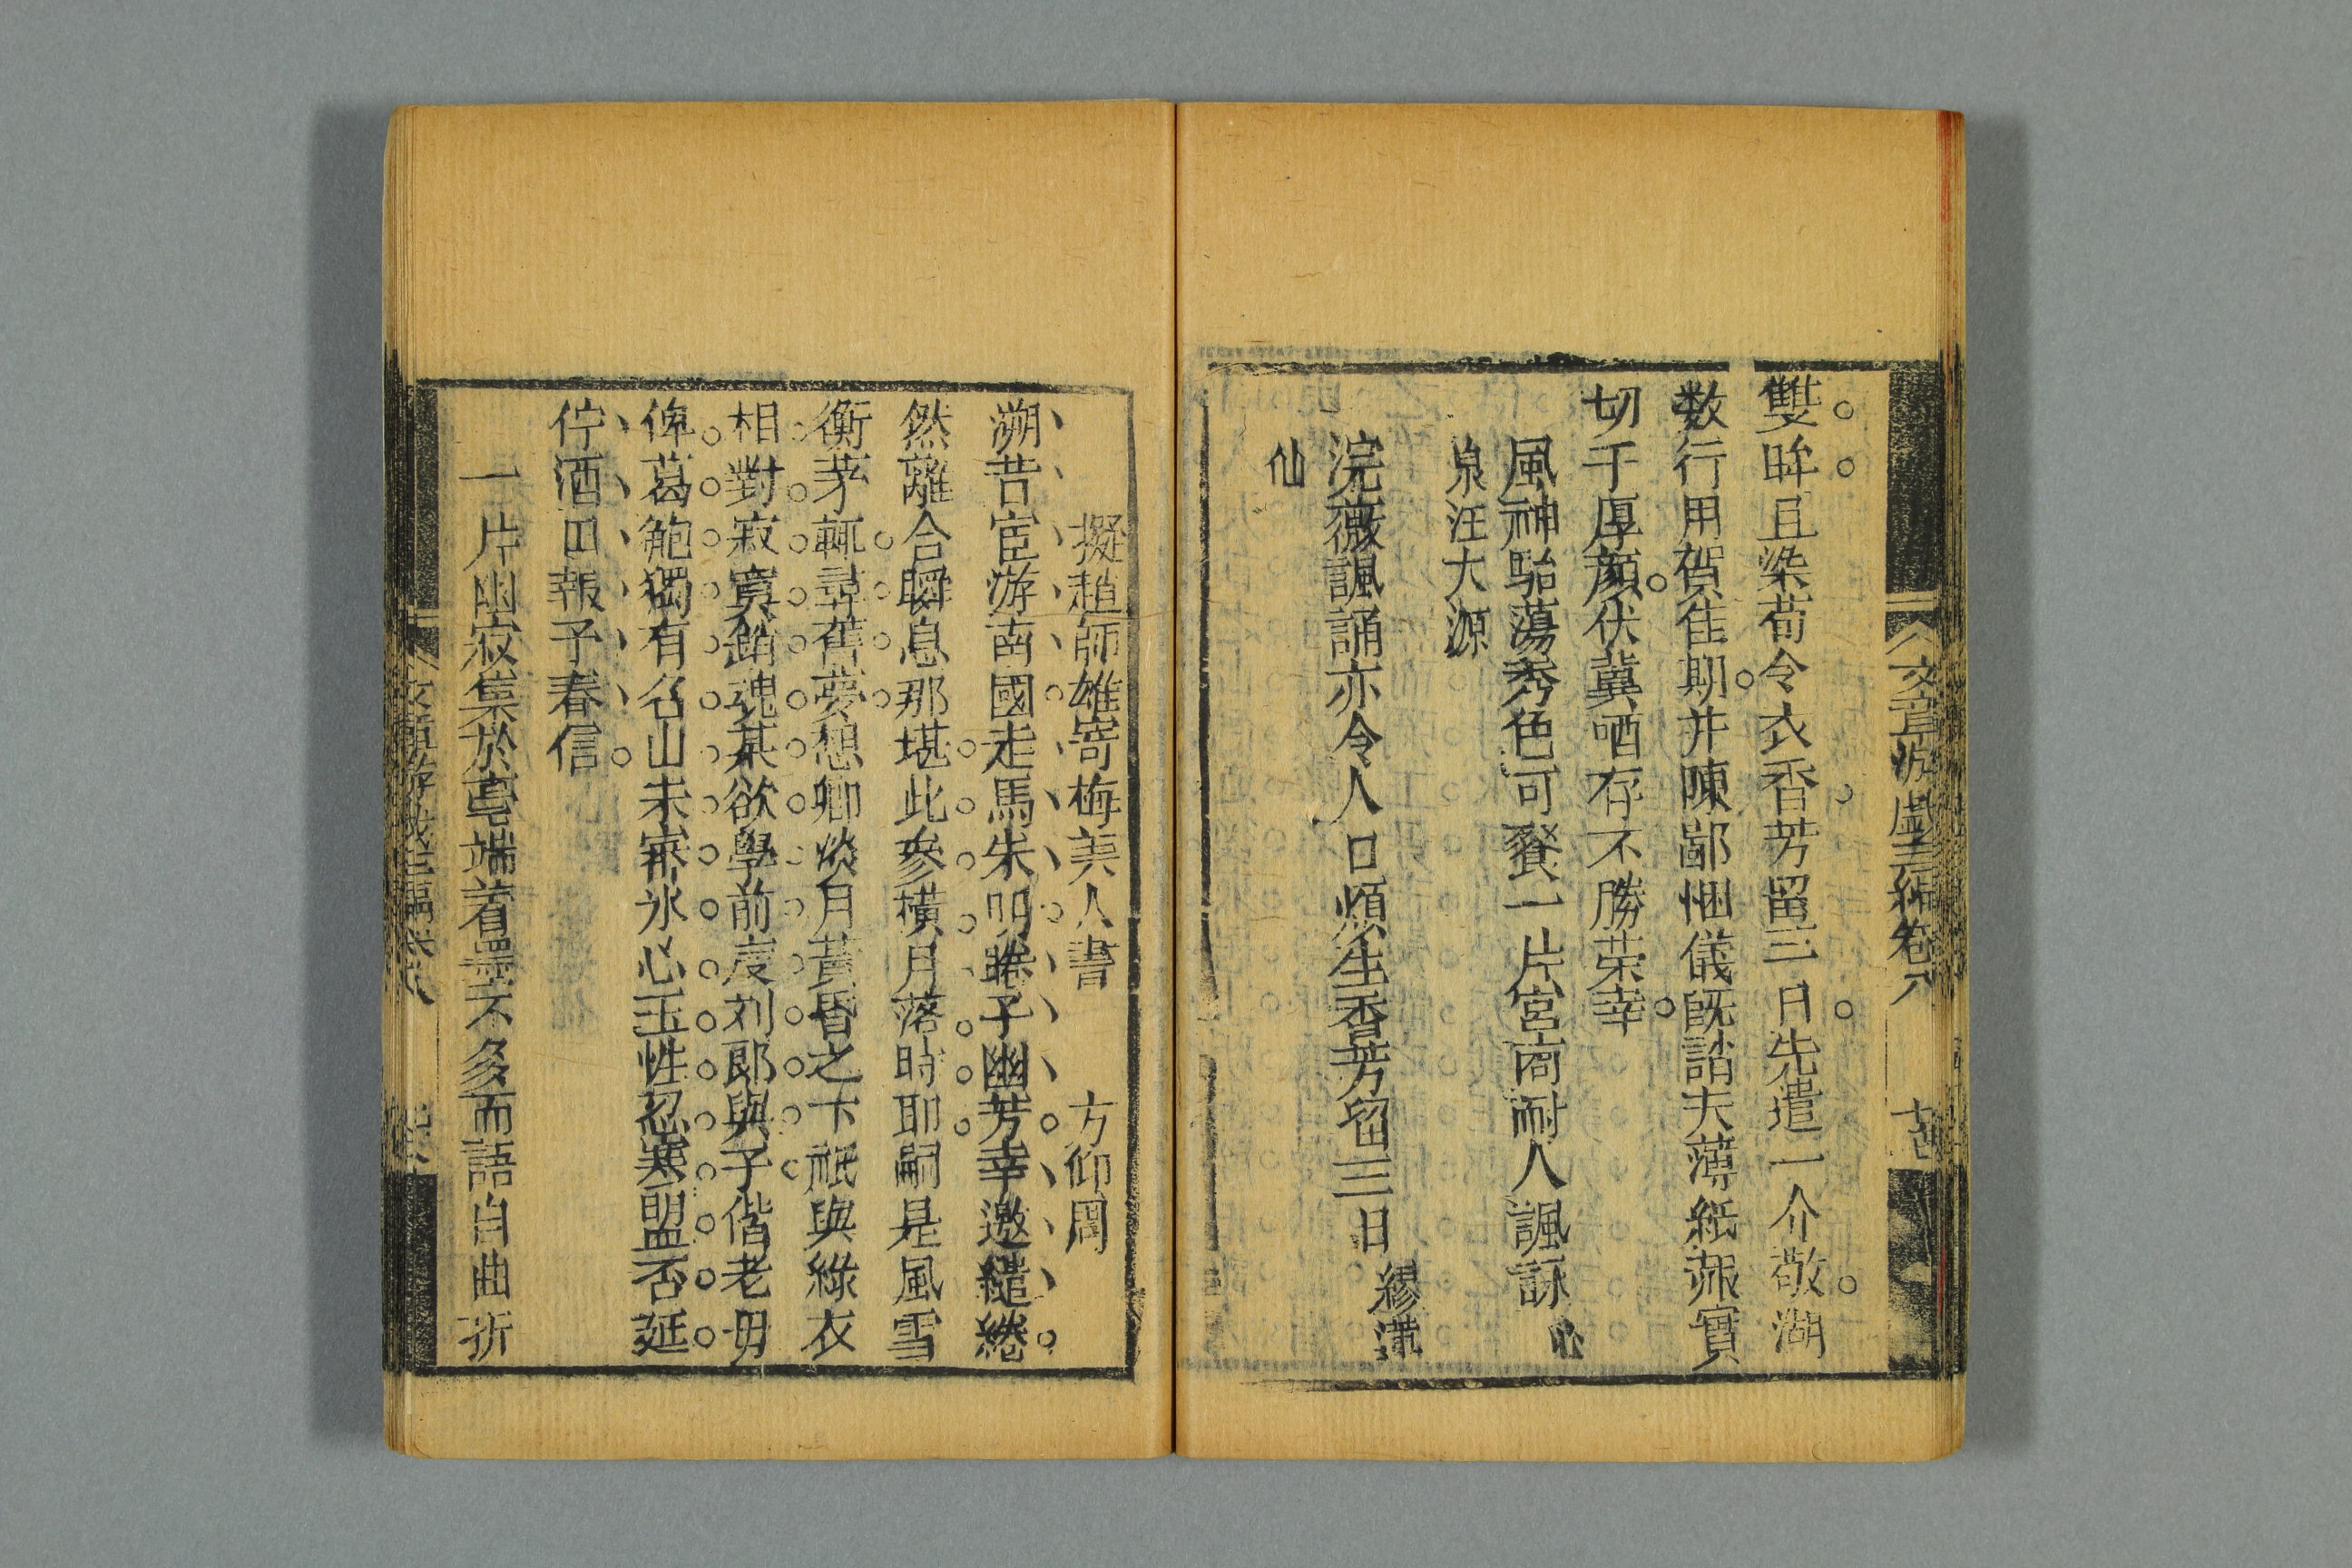 文章游戲三編卷八
雙眸且染荀令衣香芳留三日先遣一介敬湖
数行用賀佳期并陳鄙悃儀既諮夫薄紙菲實
切于厚顏伏冀哂存不勝荣幸
風神駘蕩秀色可餐一片宮商耐人諷詠 心
泉汪大源
浣薇諷誦亦令人口頰生香芳留三日 繆蓮
仙
擬趙師雄寄梅美人書 方仰周
溯昔宦游南國走馬朱明睠予幽芳幸邀繾綣
然離合瞬息那堪此參橫月落時耶嗣是風雪
衡茅輒尋舊夢想卿淡月黃昏之下祇與綠衣
相對寂寞銷魂某欲學前度刘郎與子偕老毋
俾葛鮑獨有名山未審氷心玉性忍寒盟否延
佇酒口報予春信
一片幽寂集於毫端着墨不多而語自曲折
文章游戲三編卷八